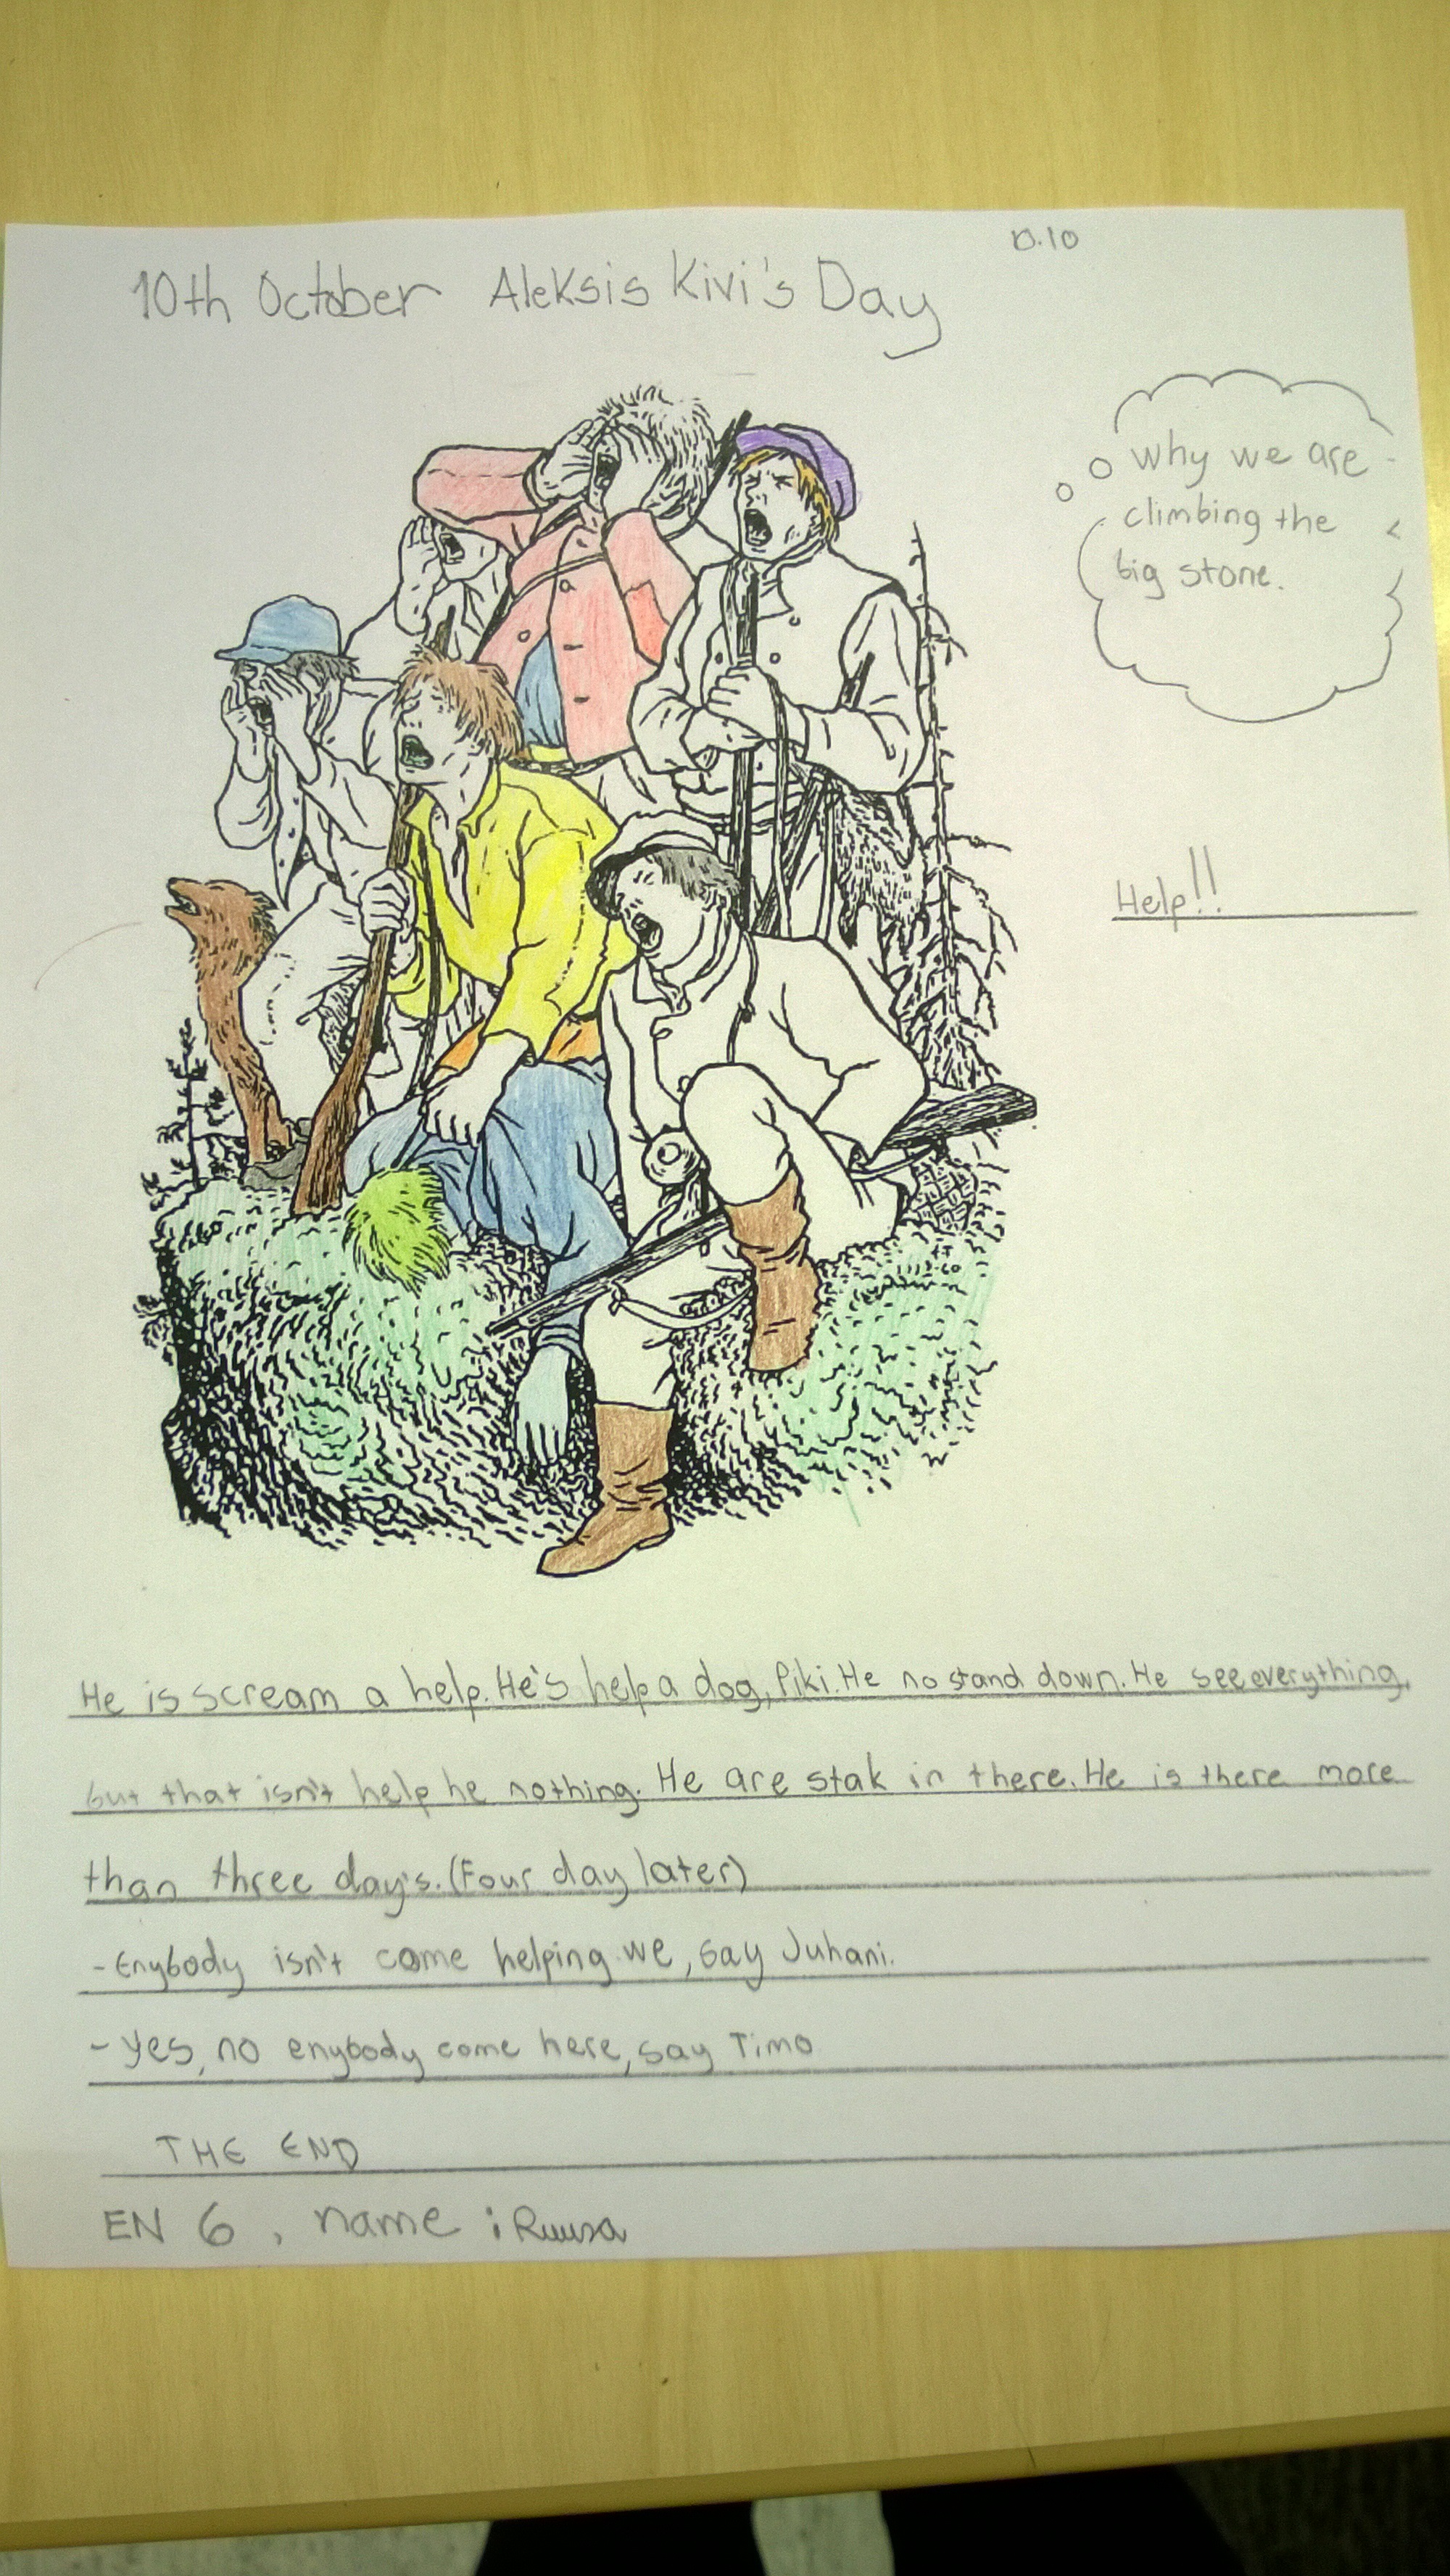 10.10
10th October Aleksis Kivi's Day
why we are
climbing the
big stone.
Help!!
He is scream a help. He's help a dog, Piki. He no stand down. He see everything,
but that isn't help he nothing. He are stak in there. He is there more
than three day's. (Four day later)
- Enybody isn't come helping we, say Juhani.
- Yes, no enybody come here, say Timo
THE END
EN 6, name : Ruusa